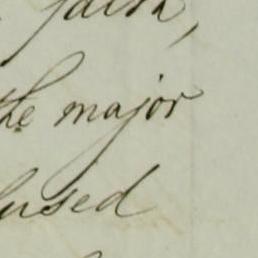 faith,
the major
used